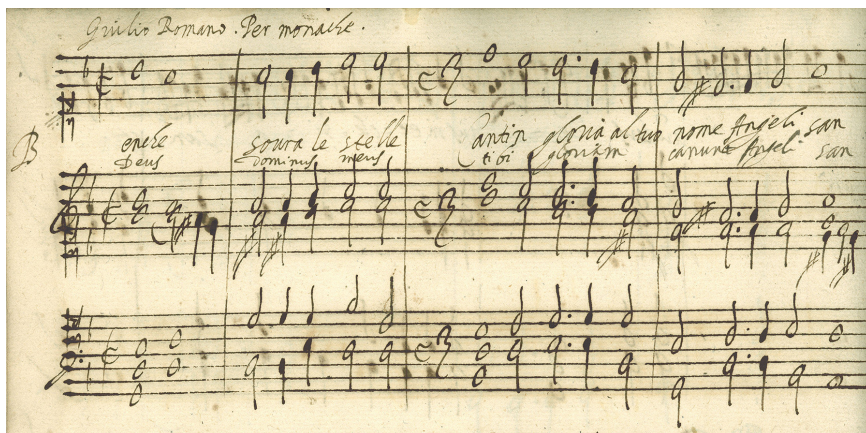 Giulio Romano. Per monache.
B enche soura le stelle Cantin gloria al tuo nome Angeli san
Deus dominus meus tibi gloriam canunt Angeli san